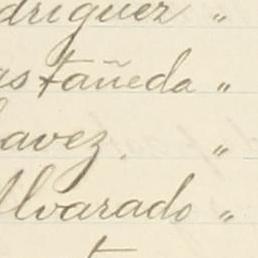 driguez "
astañeda "
avez. "
Alvarado "